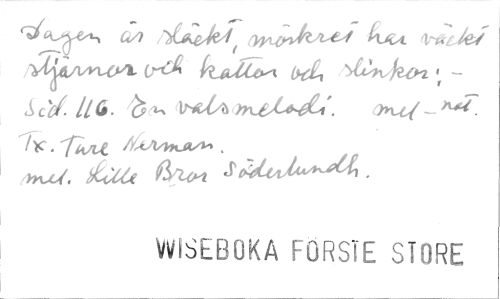 Dagen är släckt, mörkret har väckt
stjärnor och kattor och slinkor; -
Sid. 116. En valsmelodi. mel-not.
Tx. Ture Nerman.
mel. Lille Bror Söderlundh.
WISEBOKA FÖRSTE STORE